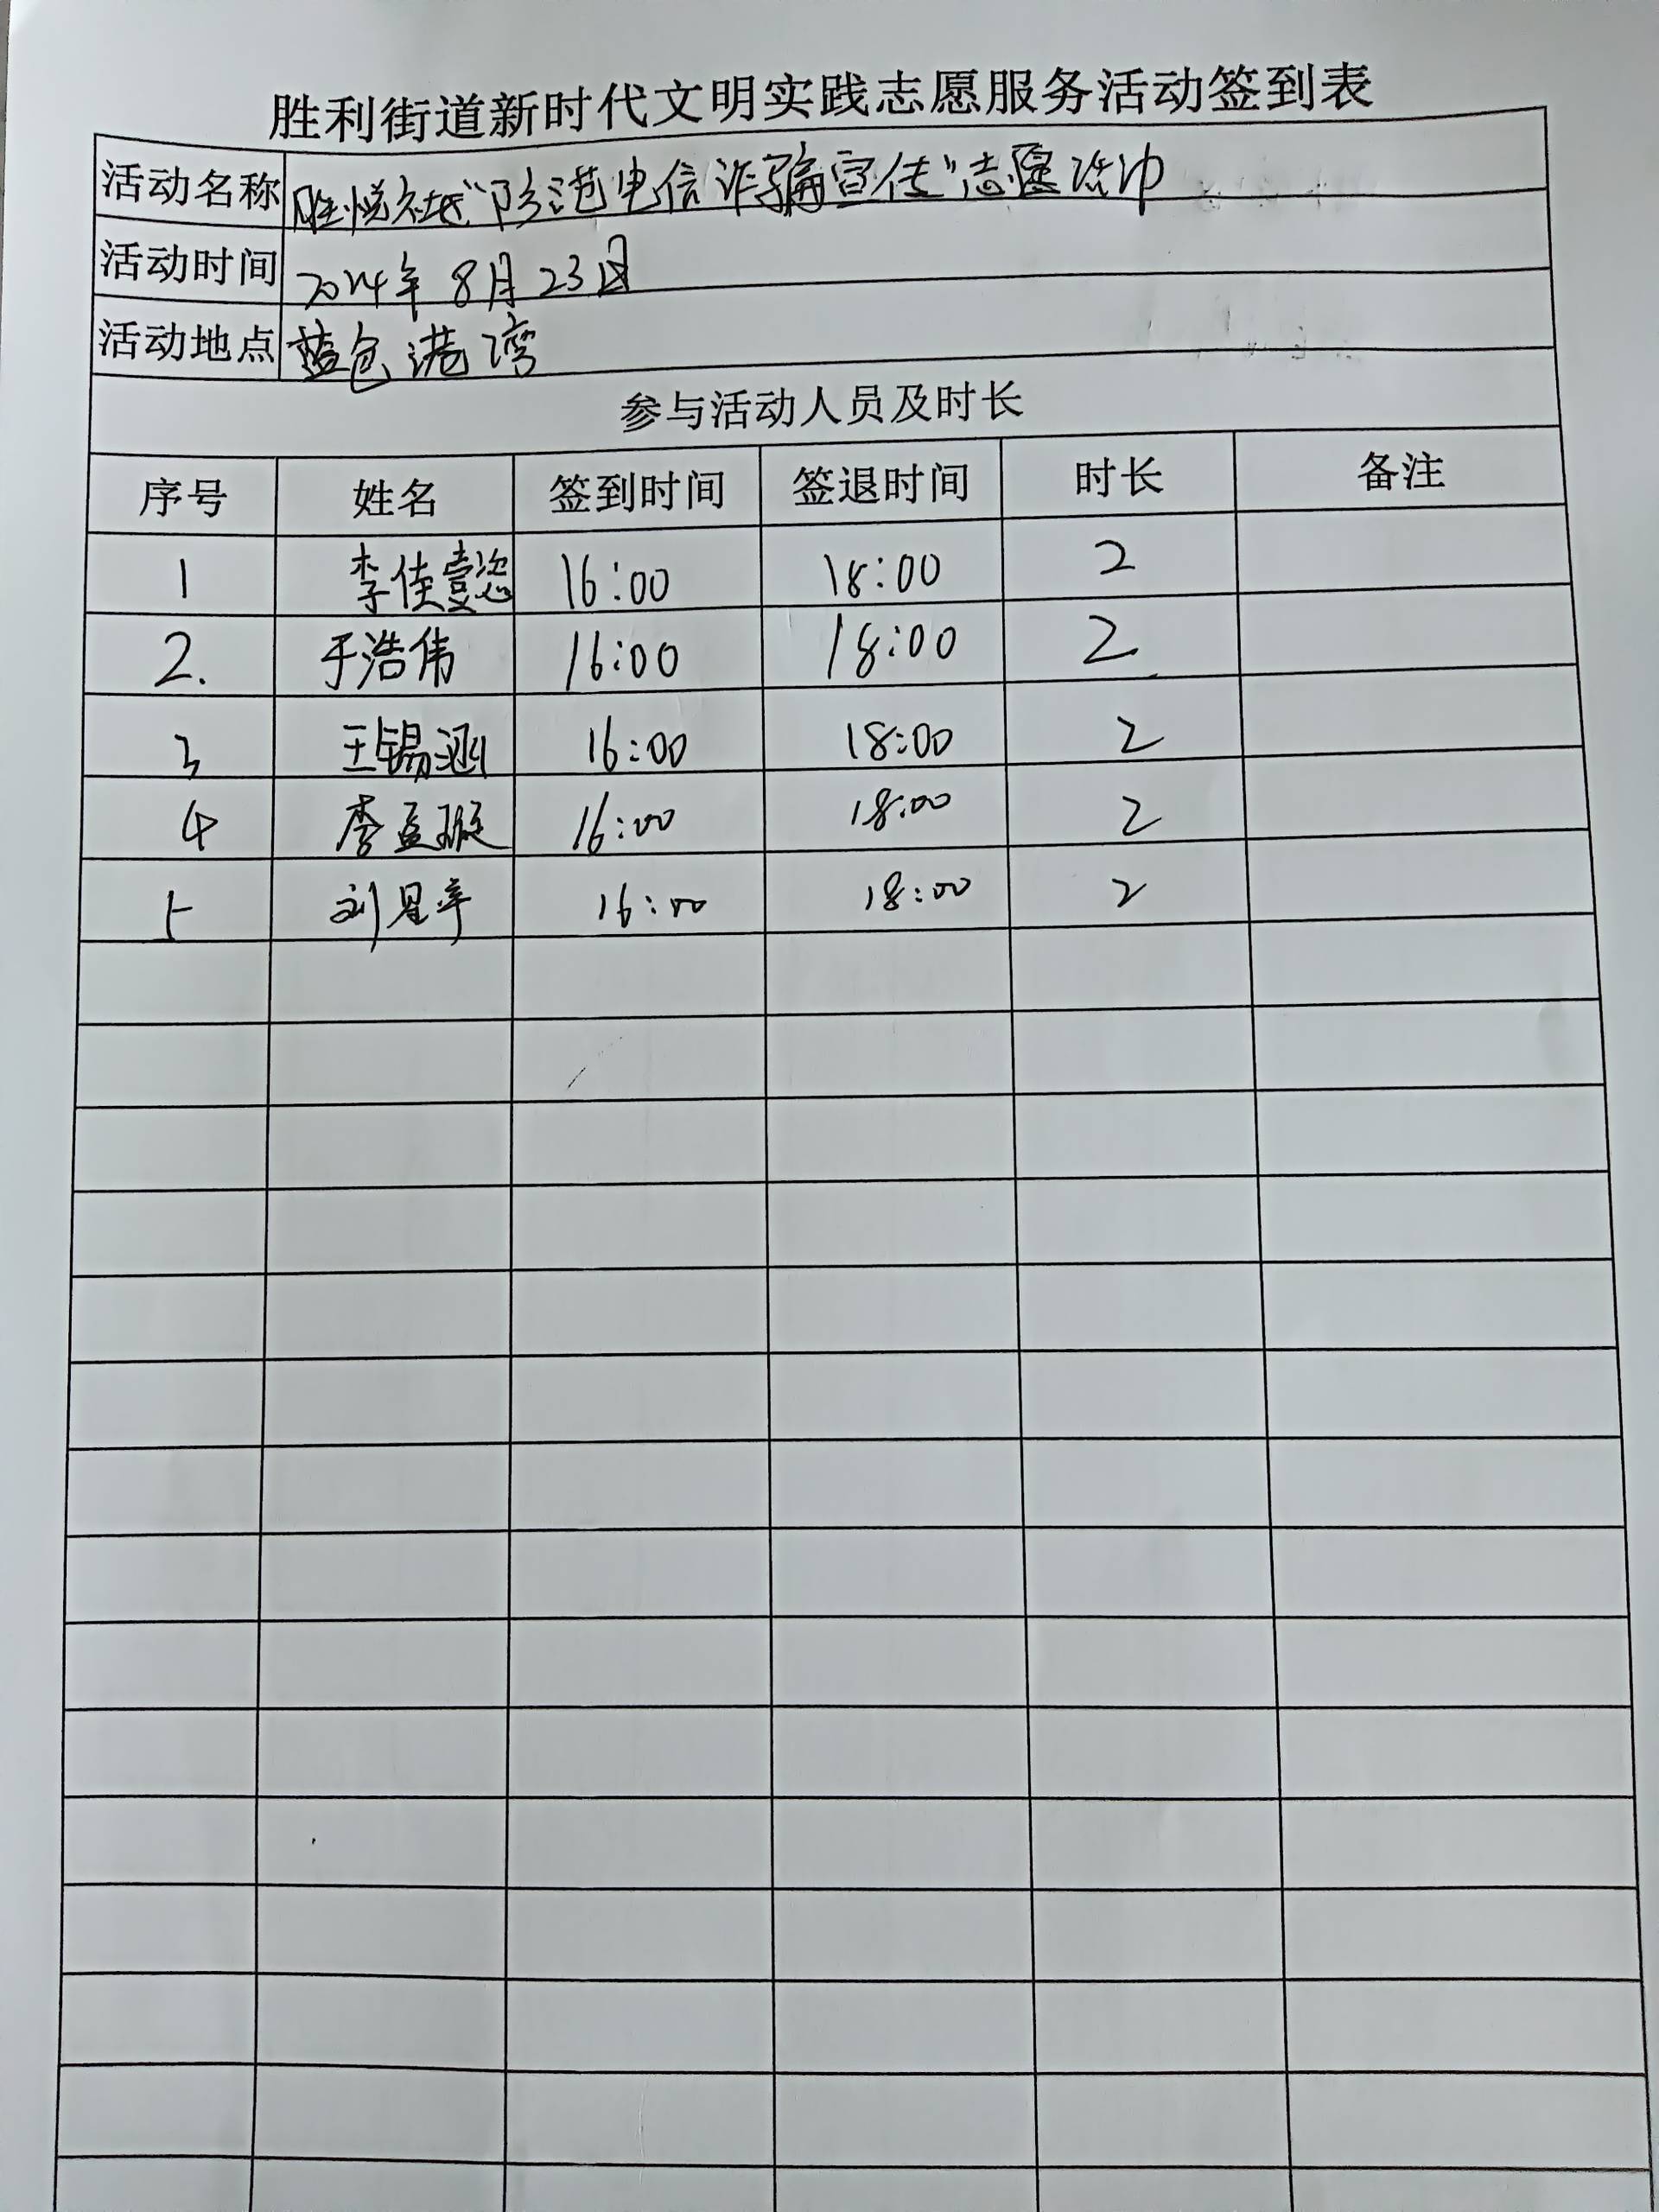 胜利街道新时代文明实践志愿服务活动签到表
活动名称 胜悦社区“防范电信诈骗宣传”志愿活动
活动时间 2024年8月23日
活动地点 蓝色港湾
参与活动人员及时长
序号 姓名 签到时间 签退时间 时长 备注
1 李佳壹恣 16:00 18:00 2
2. 于浩伟 16:00 18:00 2
3 王锡涵 16:00 18:00 2
4 李孟璇 16:00 18:00 2
5 刘星宇 16:00 18:00 2